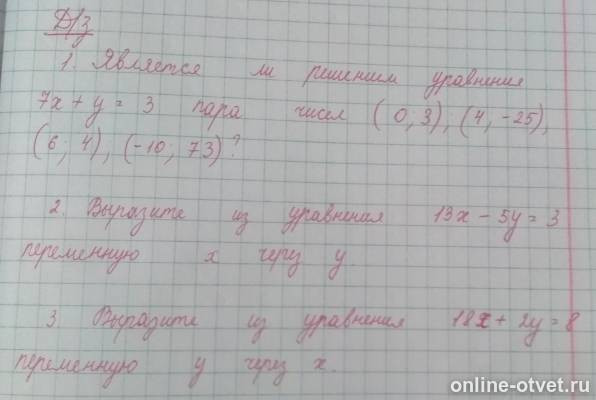 Д/з
1. Является ли решением уравнения
7x + y = 3 пара чисел (0; 3), (4, -25),
(6; 4), (-10; 73)?
2. Выразите из уравнения 13x - 5y = 3
переменную x через y.
3 Выразите из уравнения 18x + 2y = 8
переменную y через x.
online-otvet.ru